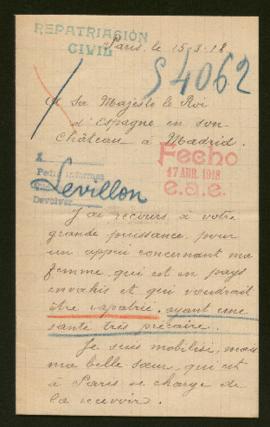 REPATRIACIÓN
CIVIL
Paris, le 15.3.18
S 4062
A Sa Majesté le Roi
d'Espagne en son
Château à Madrid.
Fecho
17 ABR. 1918
e.a.e.
A
Devolver
Levillon
J'ai recours à votre
grande puissance pour
un appui concernant ma
femme, qui est en pays
envahis et qui voudrait
être rapatriée, ayant une
santé très précaire.
Je suis mobilisé, mais
ma belle sœur, qui est
à Paris se charge de
la recevoir.